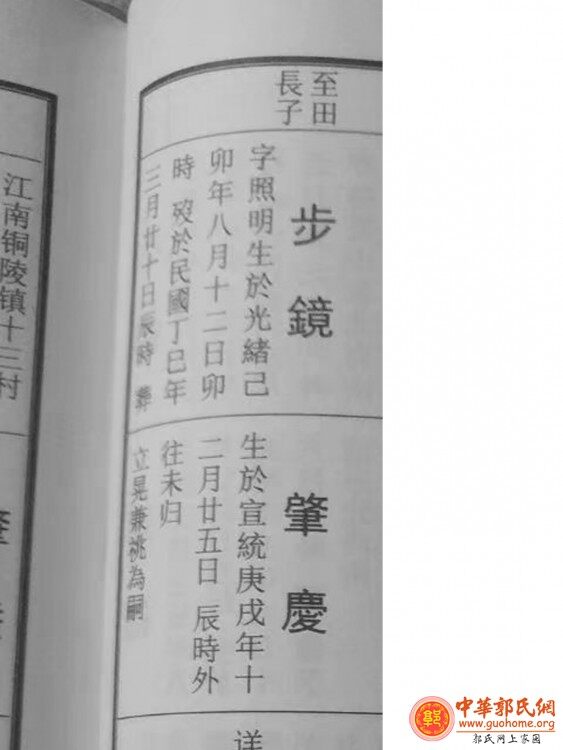 至田
長子
步鏡
字照明生於光緒己
卯年八月十二日卯
時 歿於民國丁巳年
三月廿十日辰時 葬
肇慶
生於宣統庚戌年十
二月廿五日 辰時外
往未归
立晃兼祧為嗣
详
江南铜陵镇十三村
中華郭氏網
www.guohome.org
郭氏网上家园